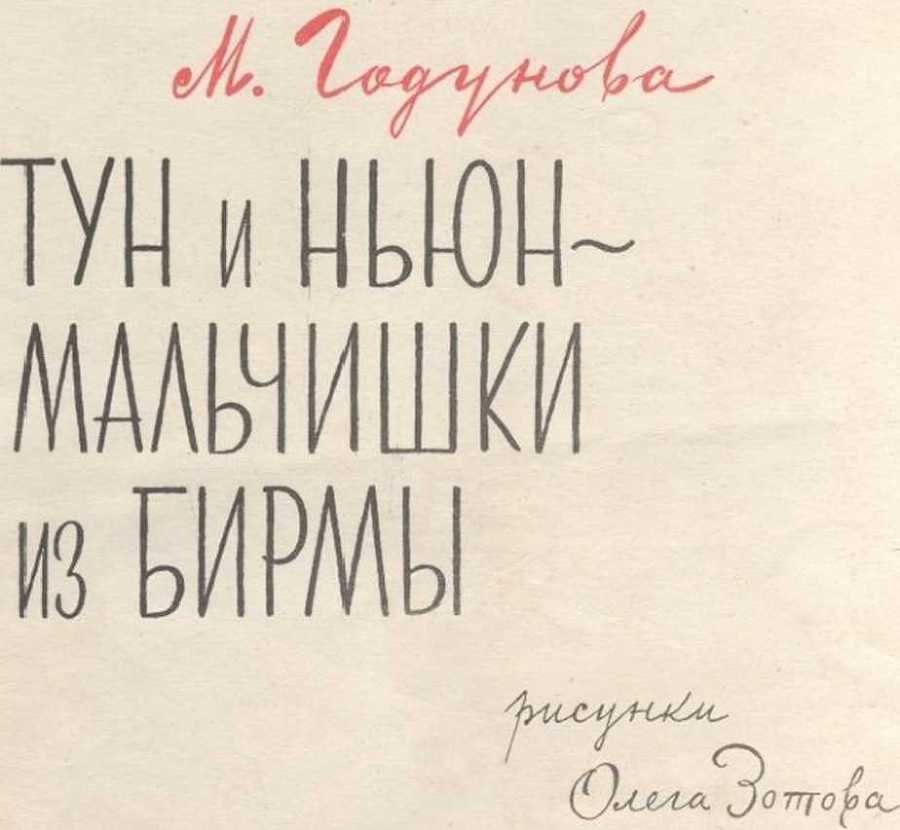 М. Годунова
ТУН и НЬЮН~
МАЛЬЧИШКИ
из БИРМЫ
рисунки
Олега Зотова